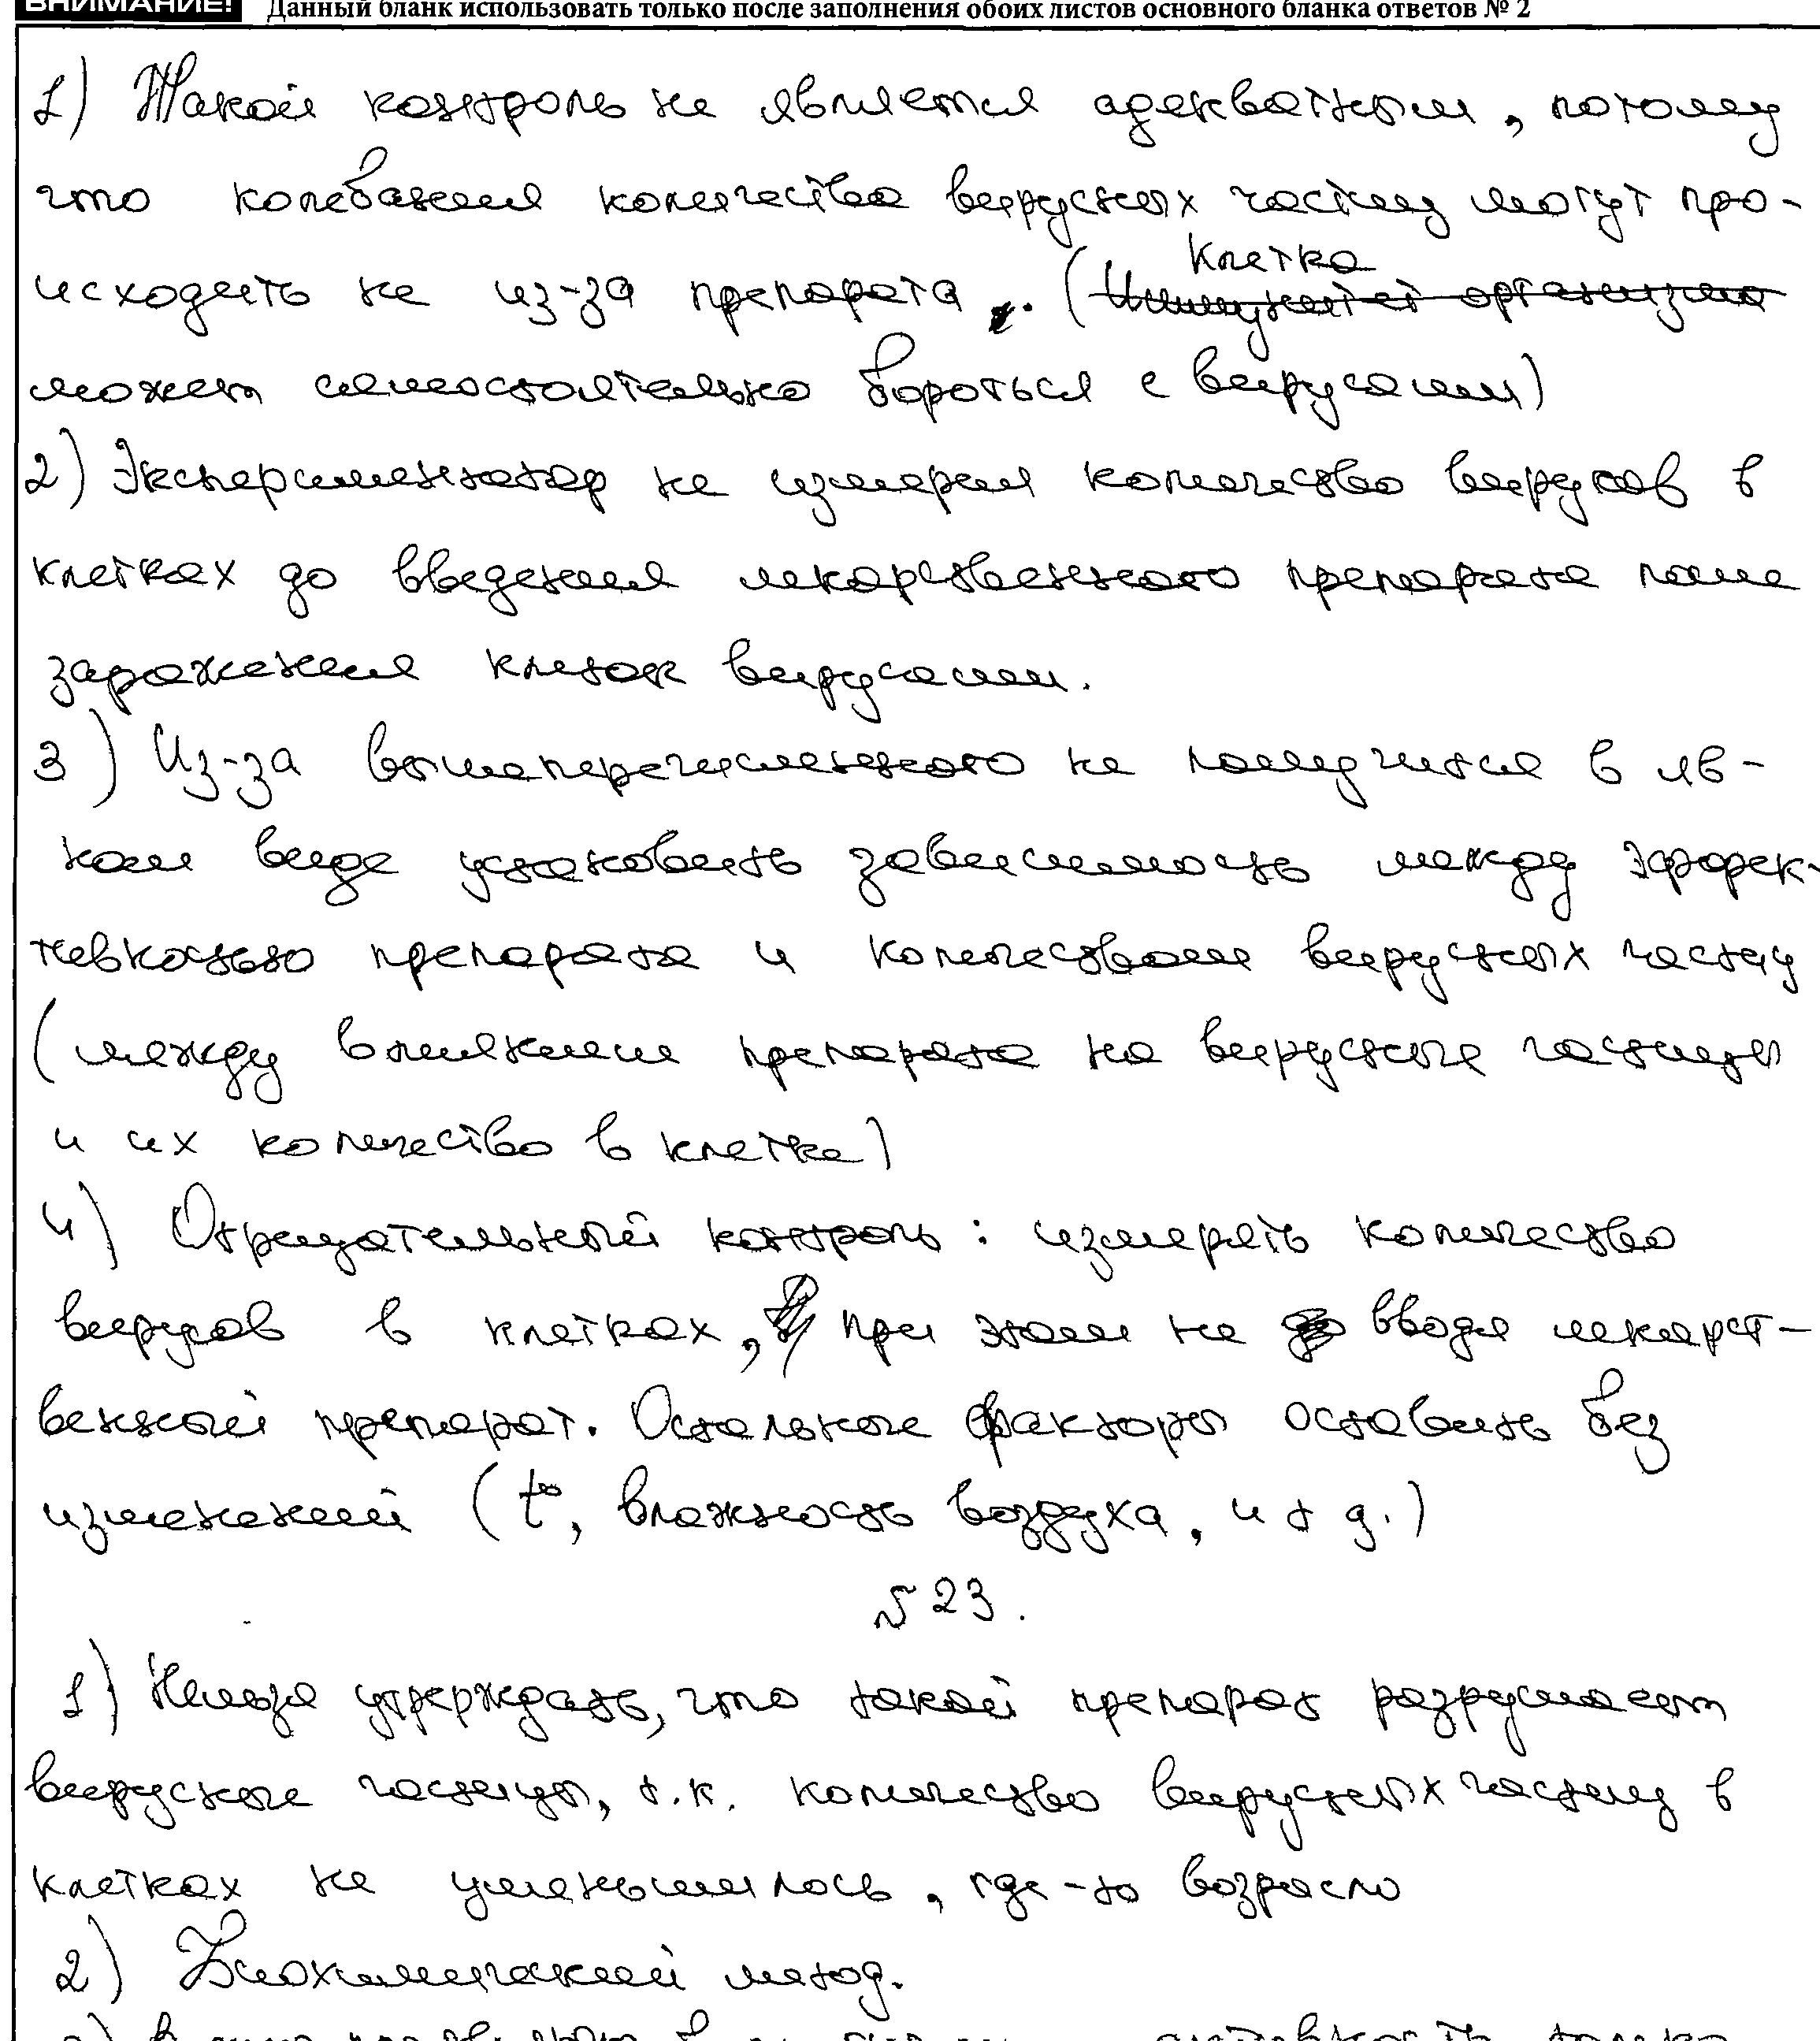 ВНИМАНИЕ! Данный бланк использовать только после заполнения обоих листов основного бланка ответов № 2
1) Такой контроль не является адекватным, потому
что колебания количества вирусных частиц могут про-
исходить не из-за препарата. (Клетка
может самостоятельно бороться с вирусами)
2) Экспериментатор не измерял количество вирусов в
клетках до введения лекарственного препарата после
заражения клеток вирусами.
3) Из-за вышеперечисленного не получится в яв-
ном виде установить зависимость между эффек-
тивностью препарата и количеством вирусных частиц
(между влиянием препарата на вирусные частицы
и их количество в клетке)
4) Отрицательный контроль: измерять количество
вирусов в клетках, при этом не вводя лекарст-
венный препарат. Остальные факторы оставить без
изменений (t°, влажность воздуха, и т д.)
№ 23.
1) Нельзя утверждать, что такой препарат разрушает
вирусные частицы, т.к. количество вирусных частиц в
клетках не уменьшилось, где-то возрасло
2) Биохимический метод.